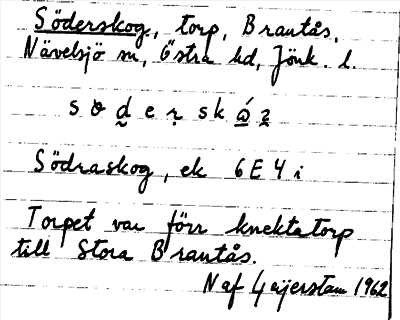 Söderskog, torp, Brantås,
Nävelsjö sn, Östra hd, Jönk. l.
Södraskog, ek 6E4i
Torpet var förr knektatorp
till Stora Brantås.
N af Gejerstam 1962